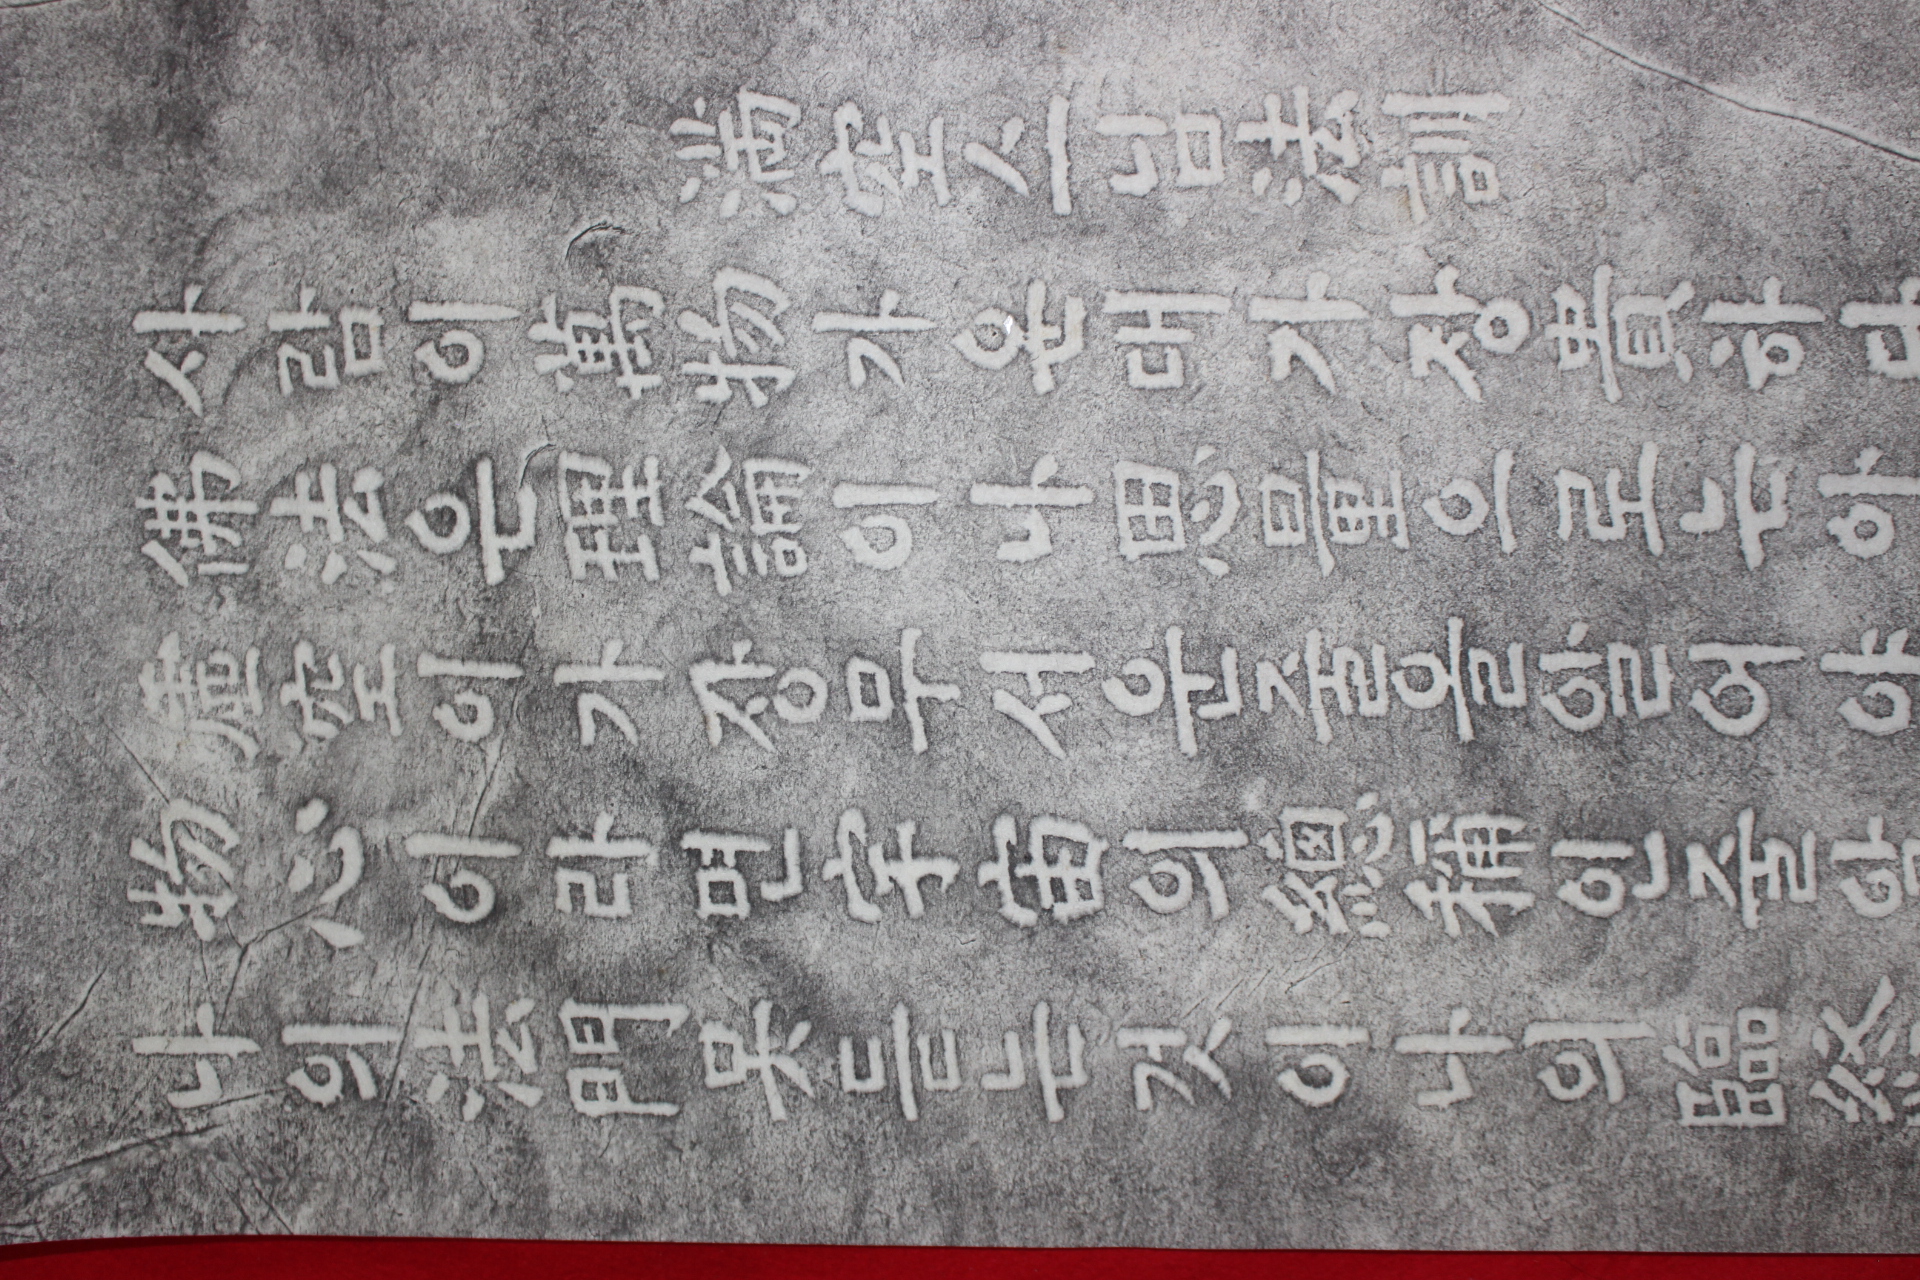 滿空스님法訓
사람이萬物가운대가장貴하다
佛法은理論이나思量으로는아
虛空이가장무서운줄을알어야
物心이라면宇宙의總補인줄알
나의法門못듣는것이나의臨終